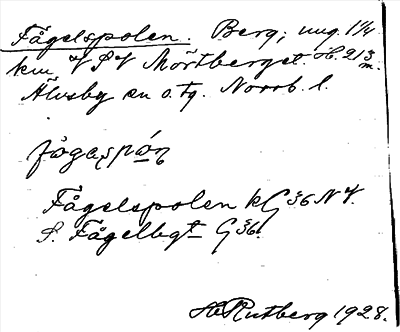 Fågelspolen. Berg; ung. 1 1/4
km VSV Mörtberget. öh. 213 m.
Älvsby sn o. tg. Norrb. l.
fògaspón
Fågelspolen kG36NV.
S. Fågelbgt G36.
H. Rutberg 1928.